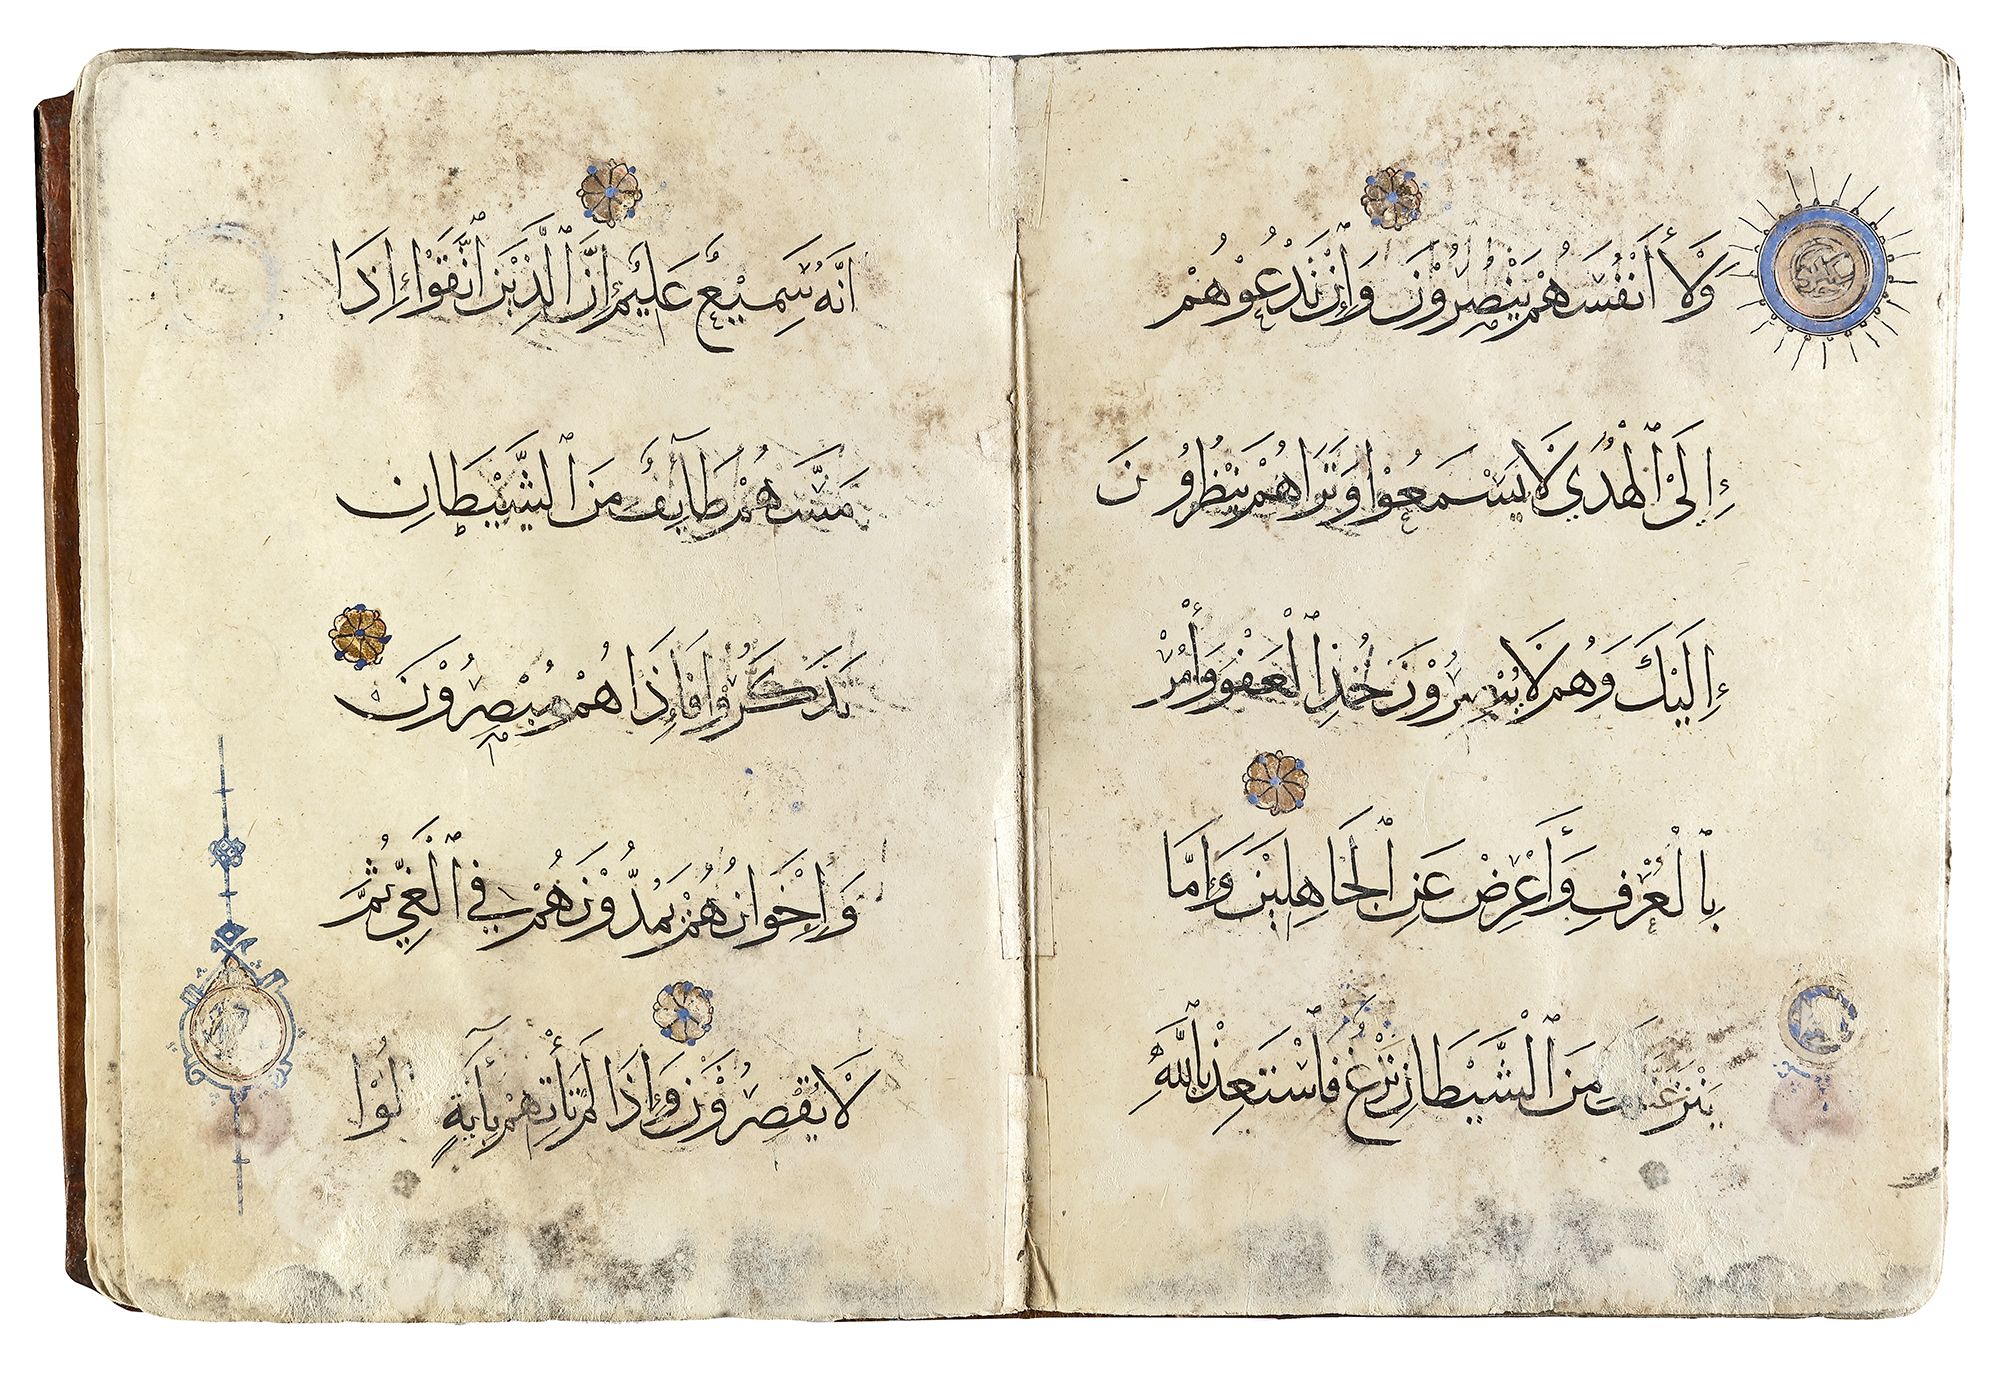 وَلَا أَنْفُسَهُمْ يَنْصُرُوْنَ وَإِنْ تَدْعُوْهُمْ
إِلَى ٱلْهُدَي لَا يَسْمَعُوْا وَتَرَاهُمْ يَنْظُرُوْنَ
إِلَيْكَ وَهُمْ لَا يُبْصِرُوْنَ خُذِ ٱلْعَفْوَ وَأْمُرْ
بِٱلْعُرْفِ وَأَعْرِضْ عَنِ ٱلْجَاهِلِيْنَ وَإِمَّا
يَنْزَغَنَّكَ مِنَ ٱلشَّيْطَانِ نَزْغٌ فَٱسْتَعِذْ بِٱللَّهِ
إِنَّهُ سَمِيْعٌ عَلِيْمٌ إِنَّ ٱلَّذِيْنَ ٱتَّقَوْا إِذَا
مَسَّهُمْ طَآيِفٌ مِنَ ٱلشَّيْطَانِ
تَذَكَّرُوْا فَإِذَا هُمْ مُبْصِرُوْنَ
وَإِخْوَانُهُمْ يَمُدُّوْنَهُمْ فِي ٱلْغَيِّ ثُمَّ
لَا يُقْصِرُوْنَ وَإِذَا لَمْ تَأْتِهِمْ بِأَيَةٍ لُوْا